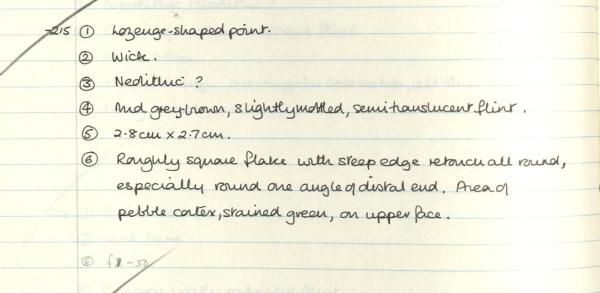 -215 ① Lozenge-shaped point.
② Wick.
③ Neolithic ?
④ Mid grey-brown, slightly mottled, semi translucent flint.
⑤ 2.8cm x 2.7cm.
⑥ Roughly square flake with steep edge retouch all round,
especially round one angle of distal end. Area of
pebble cortex, stained green, on upper face.